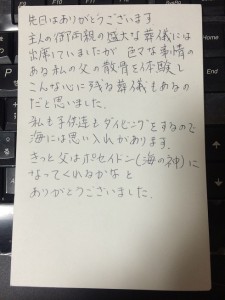 先日はありがとうございます
主人の御両親の盛大な葬儀には
出席していましたが 色々な事情の
ある私の父の散骨を体験し
こんな心に残る葬儀もあるの
だと思いました.
私も子供達もダイビングをするので
海には思い入れがあります.
きっと父はポセイドン(海の神)に
なってくれるかなと
ありがとうございました.